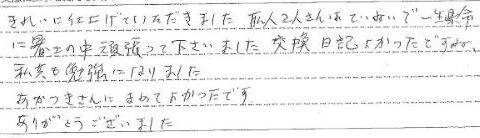 きれいに仕上げていただきました 職人2人さんはていねいで一生懸命
に暑さの中頑張って下さいました 交換日記よかったですよ、
私共も勉強になりました
あかつきさんにきめてよかったです
ありがとうございました